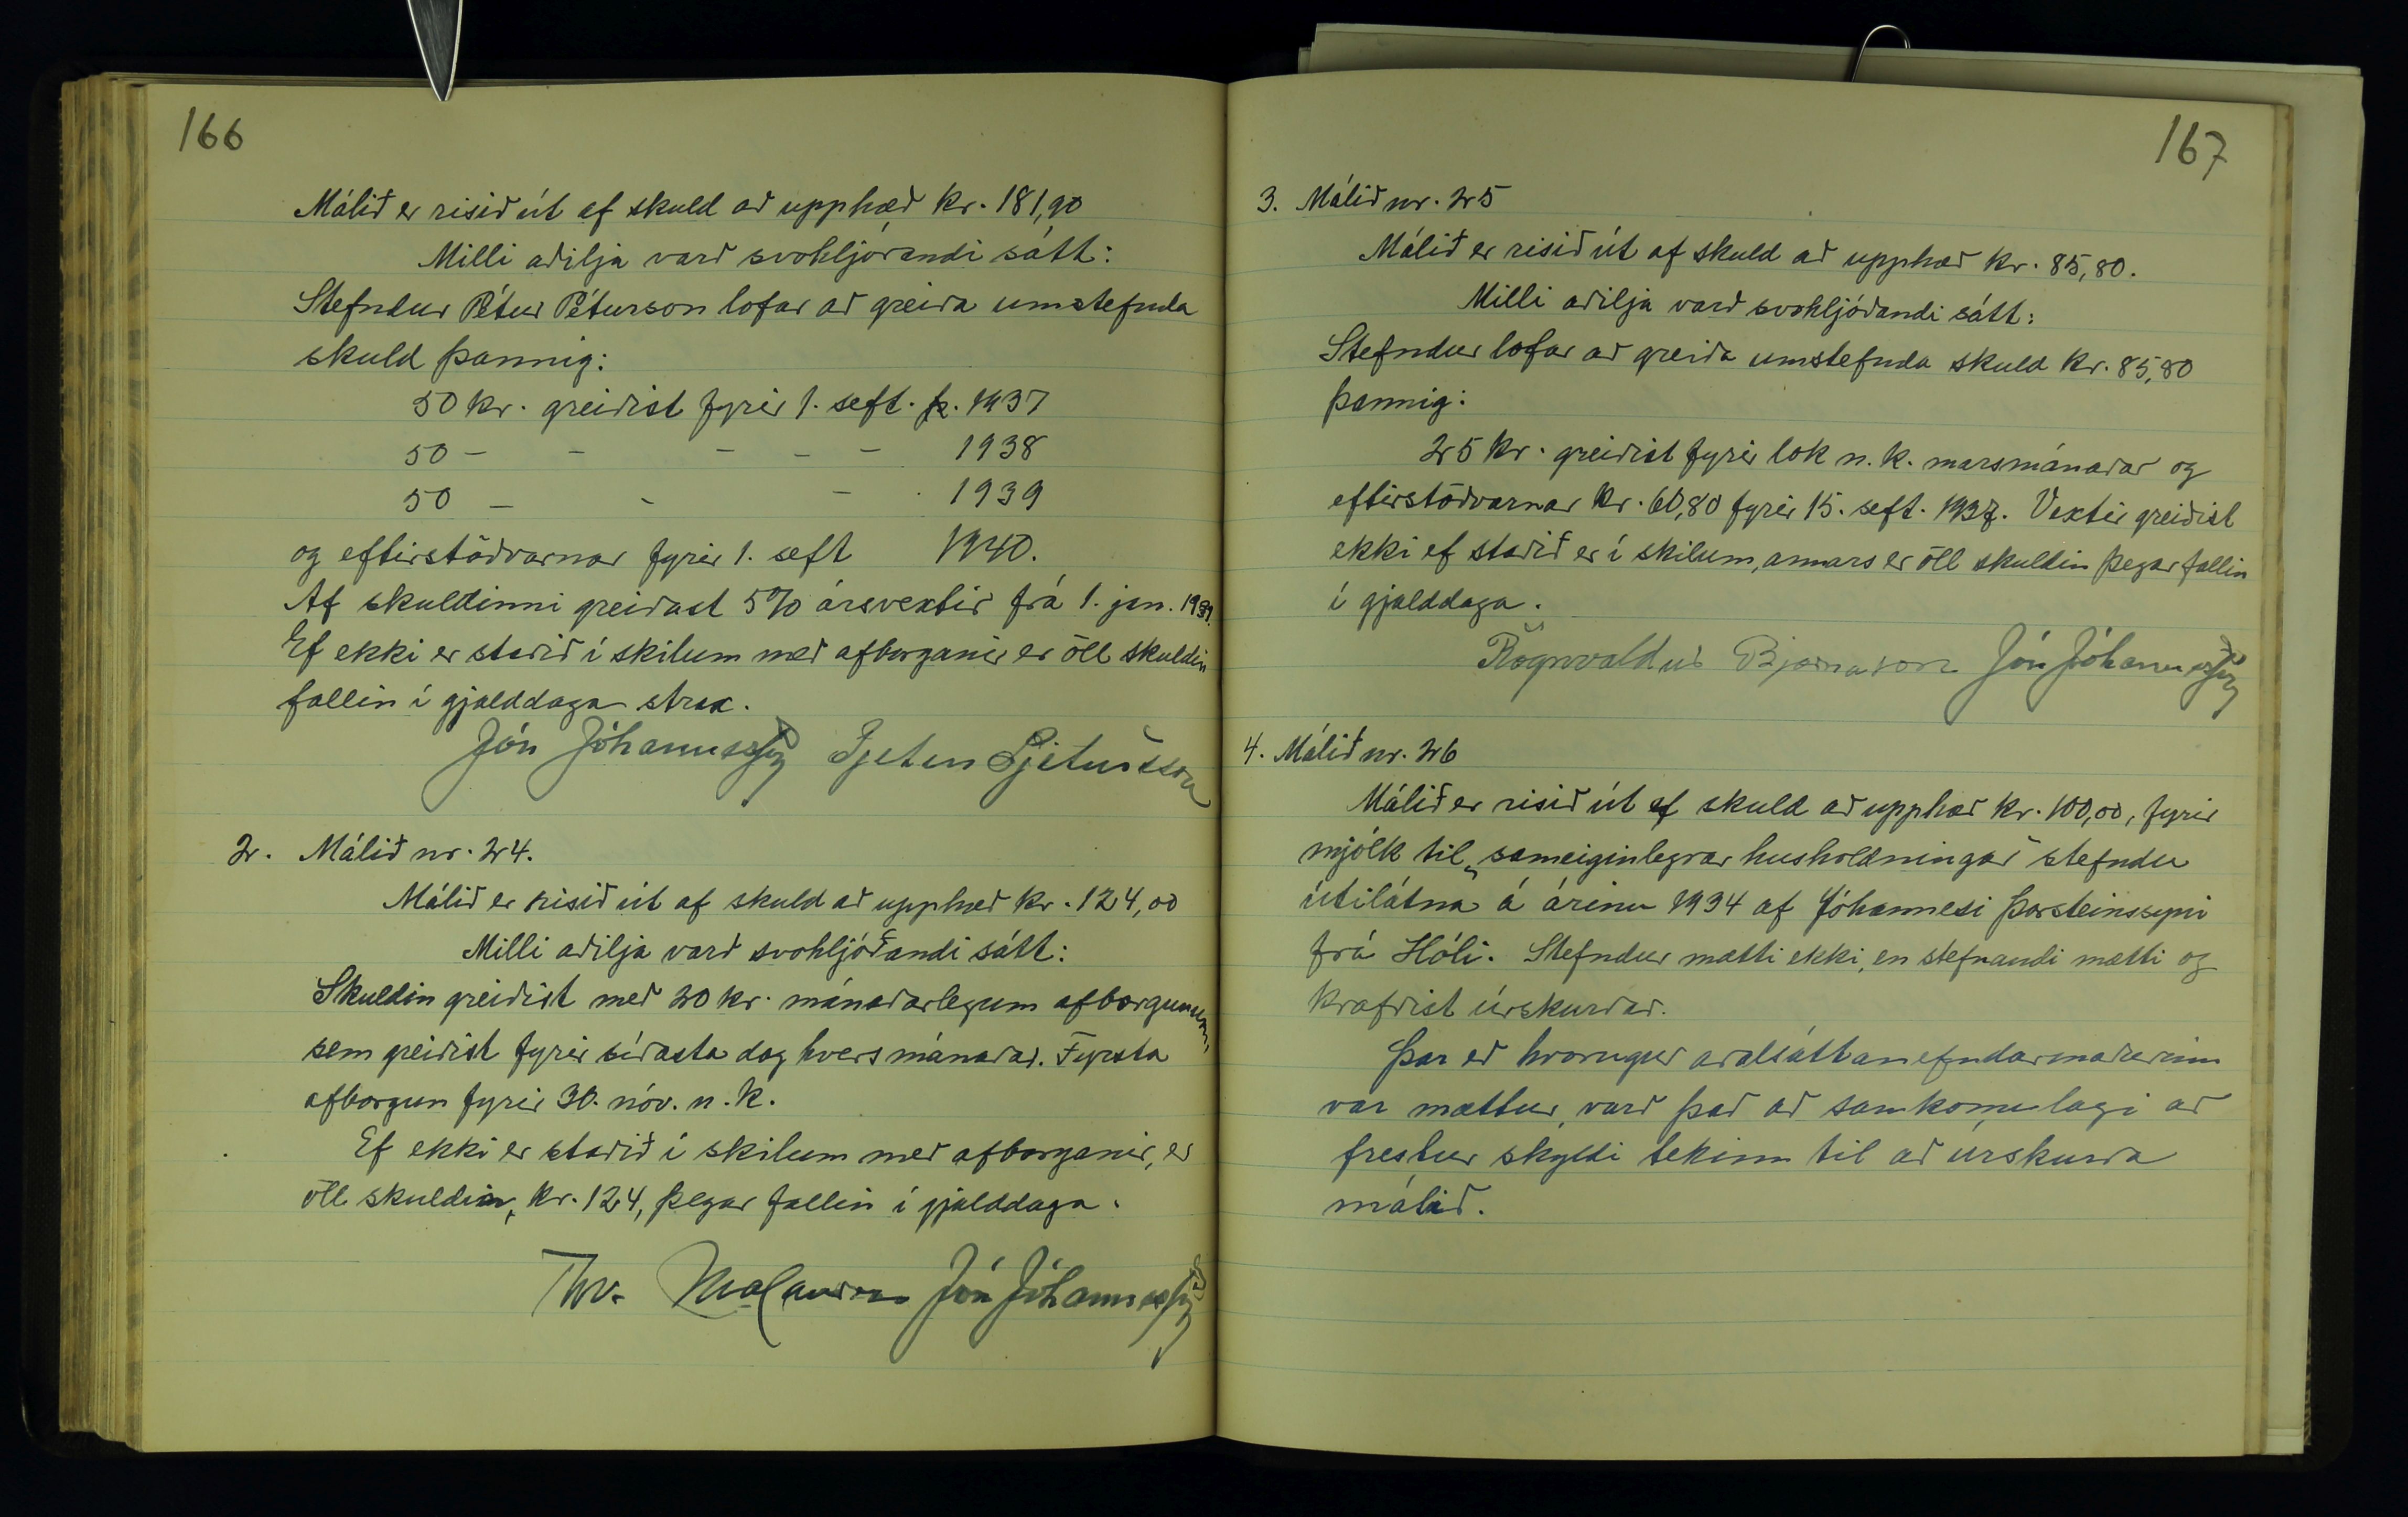 166
Málið er risið út af skuld að upphæð kr. 181,90
Milli aðilja varð svohljóðandi sátt:
Stefndur Pétur Péturson lofar að greiða umstefnda
skuld þannig:
50 kr. greiðist fyrir 1. sept. 1937
50 - - - - - 1938
50 - - - 1939
og eftirstöðvarnar fyrir 1. sept 1940.
Af skuldinni greiðast 5% ársvextir frá 1. jan.
Ef ekki er staðið í skilum með afborganir er öll skuldin
fallin í gjalddaga strax.
Jón Jóhannesson Pjetur Pjetursson
2. Málið nr. 24.
Málið er risið út af skuld að upphæð kr. 124,00
Milli aðilja varð svohljóðandi sátt:
Skuldin greiðist með 20 kr. mánaðarlegum afborgunum,
sem greiðist fyrir síðasta dag hvers mánaðar. Fyrsta
afborgun fyrir 30. nóv. n.k.
Ef ekki er staðið í skilum með afborganir, er
öll skuldin, kr. 124, þegar fallin í gjalddaga.
Jón Jóhannesson
167
3. Málið nr. 25
Málið er risið út af skuld að upphæð kr. 85,80.
Milli aðilja varð svohljóðandi sátt:
Stefndur lofar að greiða umstefnda skuld kr. 85,80
þannig:
25 kr. greiðist fyrir lok n.k. marsmánaðar og
eftirstöðvarnar kr. 60,80 fyrir 15. sept. 1937. Vextir greiðist
ekki ef staðið er í skilum, annars er öll skuldin þegar fallin
í gjalddaga.
Rögnvaldur Bjarnason Jón Jóhannesson
4. Málið nr. 26
Málið er risið út af skuld að upphæð kr. 100,00, fyrir
mjólk til „sameiginlegrar husholdningar" stefndu
útilátna á árinu 1934 af Jóhannesi Þorsteinssyni
frá Hóli. Stefndur mætti ekki, en stefnandi mætti og
krafðist úrskurðar.
Þar eð hvorugur aðalsáttanefndarmaðurinn
var mættur, varð það að samkomulagi að
frestur skyldi tekinn til að úrskurða
málið.